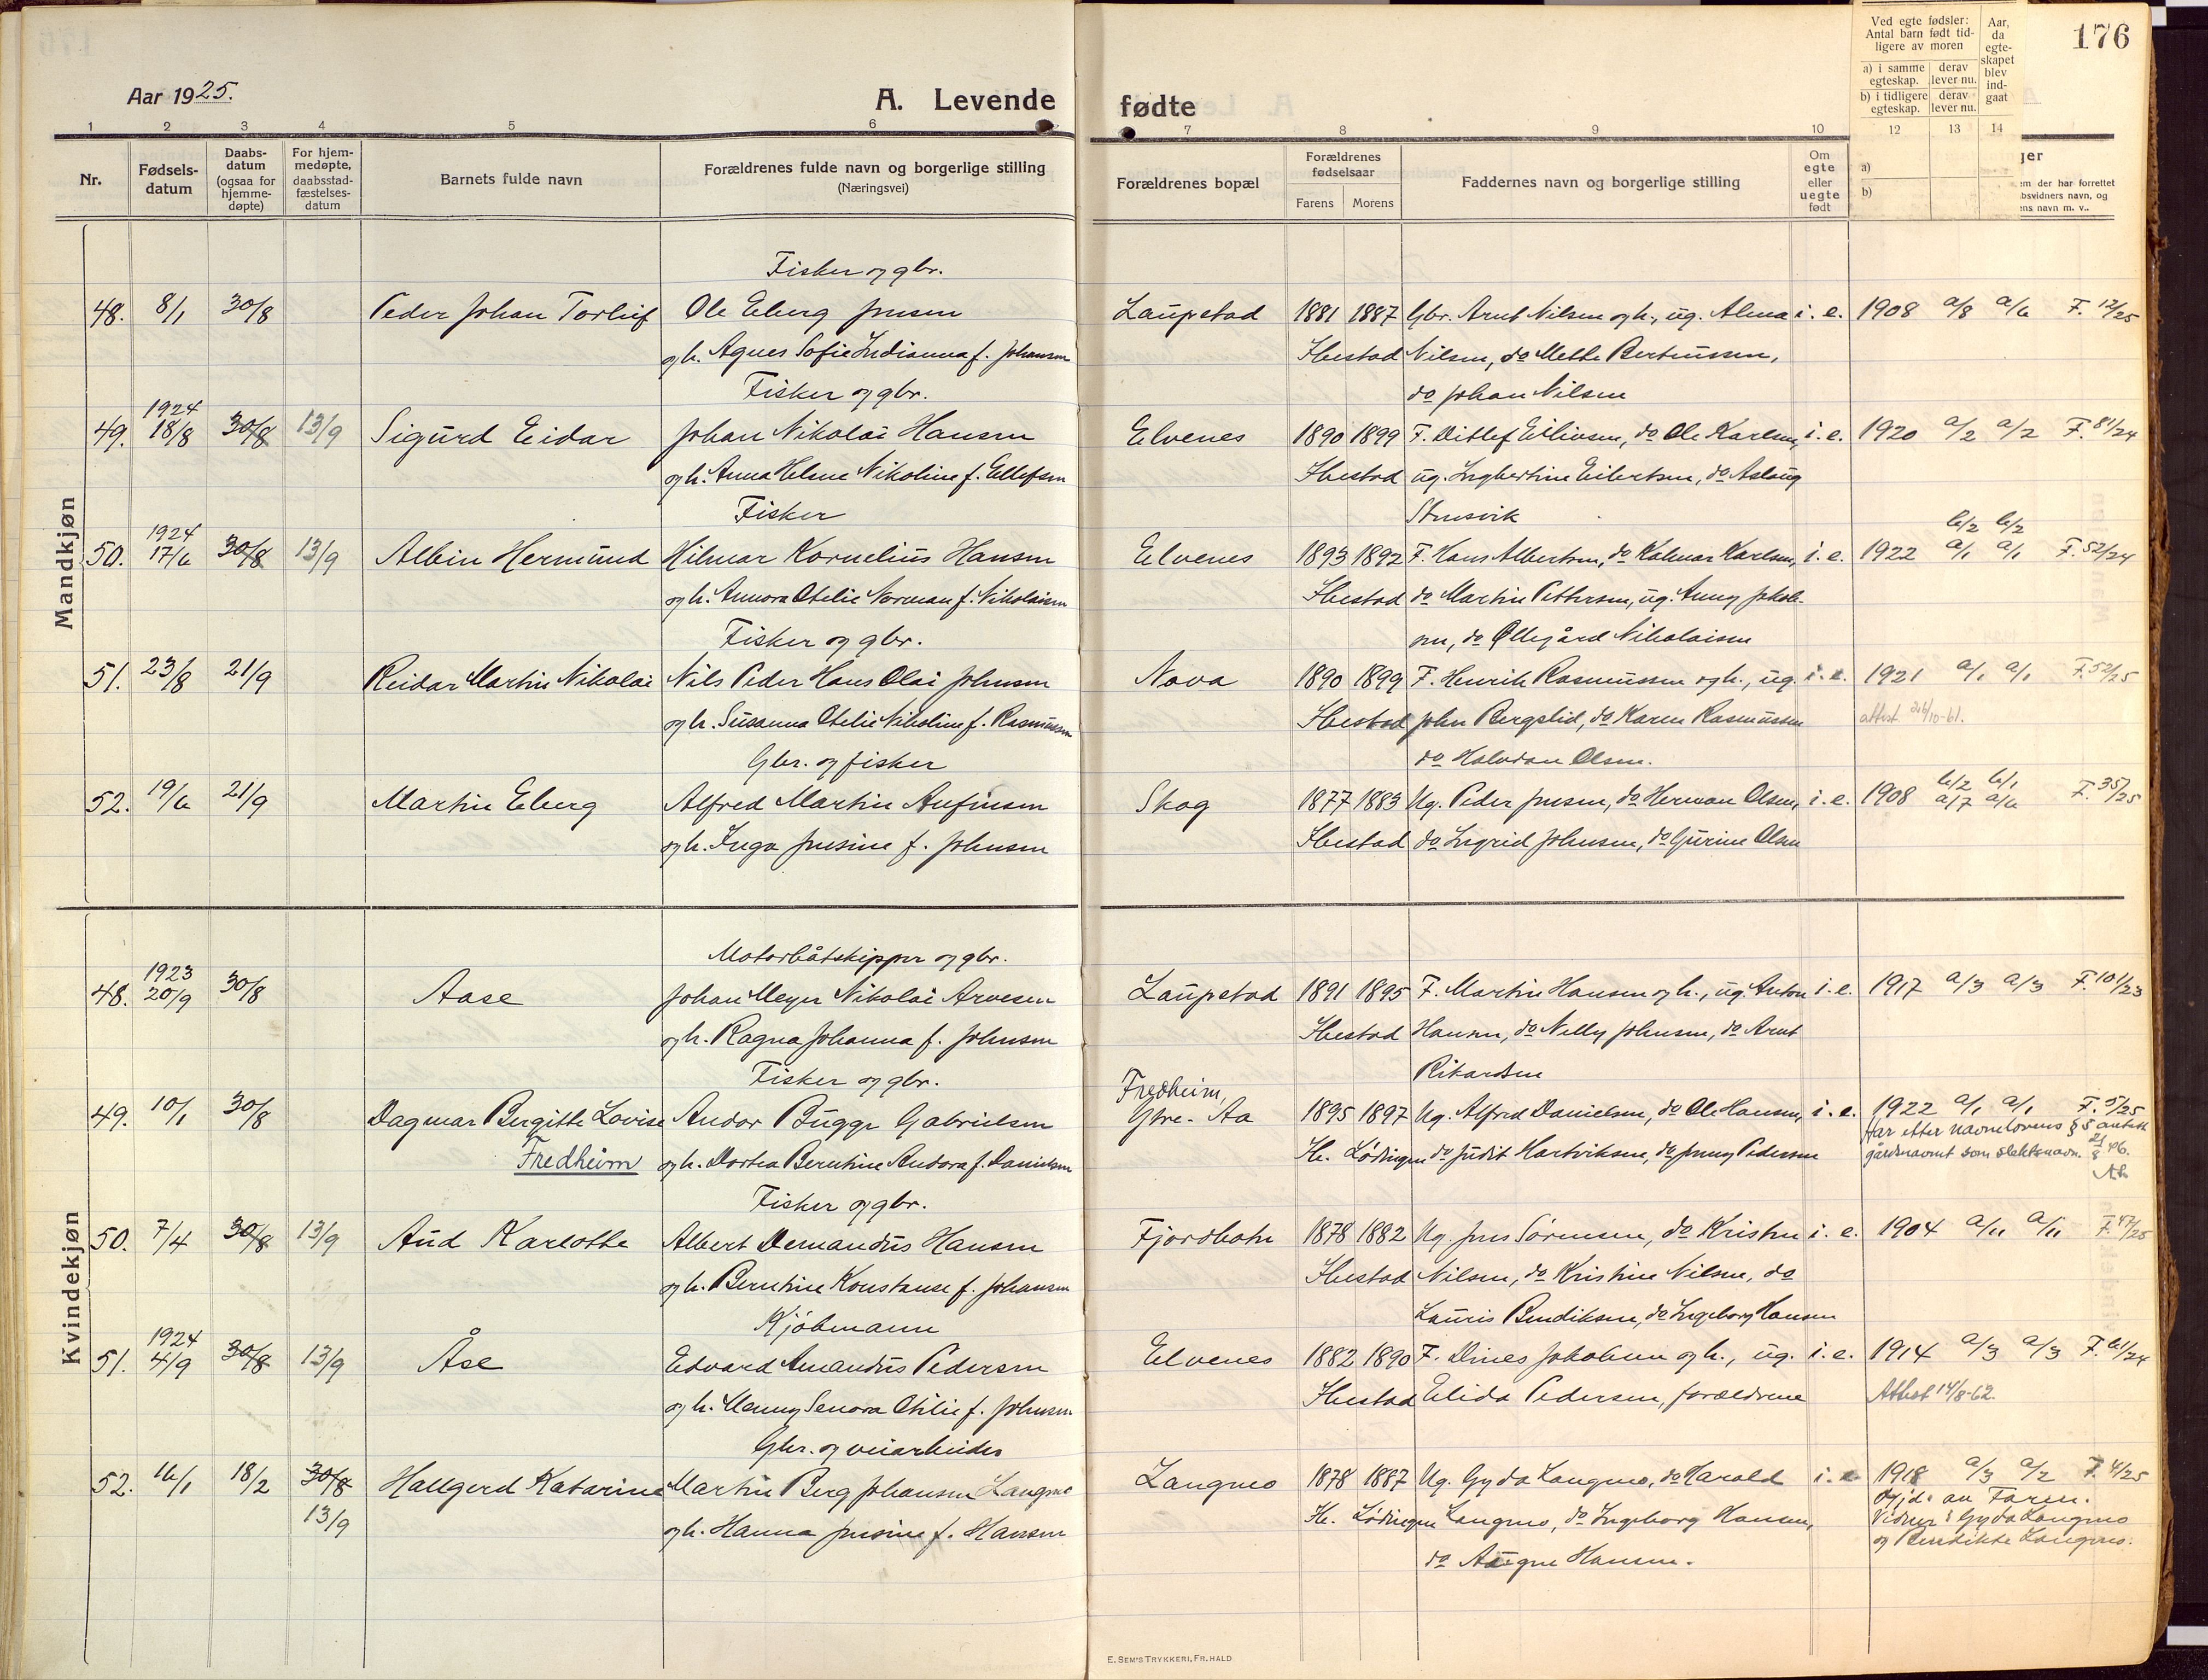 176
Aar 1925.
A. Levende fødte
Ved egte fødsler: Antal barn født tidligere av moren
a) i samme egteskap. derav lever nu.
b) i tidligere egteskap. derav lever nu.
Aar, da egteskapet blev indgaat
1 2 3 4 5 6 7 8 9 10 12 13 14
Nr.
Fødselsdatum
Daabsdatum (ogsaa for hjemmedøpte)
For hjemmedøpte, daabsstadfæstelsesdatum
Barnets fulde navn
Forældrenes fulde navn og borgerlige stilling
(Næringsvei)
Forældrenes bopæl
Forældrenes fødselsaar
Farens Morens
Faddernes navn og borgerlige stilling
Om egte eller uegte født
a)
b)
Mandkjøn
Fisker og gbr.
48. 8/1 30/8 Peder Johan Torleif Ole Eberg Jensen Laupstad 1881 1887 Gbr. Arnt Nilsen og h., ug. Alma i. e. 1908 a/8 a/6 F. 12/25
og h. Agnes Sofie Indianna f. Johansen Ibestad Nilsen, do Mette Berteussen,
Fisker og gbr. do Johan Nilsen
1924
49. 18/8 30/8 13/9 Sigurd Eidar Johan Nikolai Hansen Elvenes 1890 1899 F. Ditlef Eilivsen, do Ole Karlsen, i. e. 1920 a/2 a/2 F. 81/24
og h. Anna Helene Nikoline f. Ellefsen Ibestad ug. Ingbertine Eilertsen, do Aslaug
Fisker Stensvik
1924 b/2 b/2
50. 17/6 30/8 13/9 Albin Hermund Hilmar Kornelius Hansen Elvenes 1893 1892 F. Hans Albertsen, do Kalmar Karlsen, i. e. 1922 a/1 a/1 F. 52/24
og h. Annora Otelie Norman f. Nikolaisen Ibestad do Martin Pettersen, ug. Anny Jakob-
Fisker og gbr. sen, do Ollegård Nikolaisen
51. 23/8 21/9 Reidar Martin Nikolai Nils Peder Hans Olai Johnsen Nova 1890 1899 F. Henrik Rasmussen og h., ug. i. e. 1921 a/1 a/1 F. 52/25
og h. Susanna Otelie Nikoline f. Rasmussen Ibestad John Bergslid, do Karen Rasmussen attest 26/10-61.
Gbr. og fisker do Halvdan Olsen.
b/2 b/1
52. 19/6 21/9 Martin Eberg Alfred Martin Aufinsen Skog 1877 1883 Ug. Peder Jensen, do Herman Olsen, i. e. 1908 a/7 a/6 F. 35/25
og h. Inga Jensine f. Johnsen Ibestad do Ingrid Johnsen, do Gurine Olsen
Kvindekjøn
Motorbåtskipper og gbr.
1923
48. 20/9 30/8 Aase Johan Meyer Nikolai Arvesen Laupstad 1891 1895 F. Martin Hansen og h., ug. Anton i. e. 1917 a/3 a/3 F. 101/23
og h. Ragna Johanna f. Johnsen Ibestad Hansen, do Nelly Johnsen, do Arnt
Fisker og gbr. Rikardsen
Fredheim,
49. 10/1 30/8 Dagmar Bergitte Lovise Andor Bugge Gabrielsen Ytre-Aa 1895 1897 Ug. Alfred Danielsen, do Ole Hansen, i. e. 1922 a/1 a/1 F. 5/25
Fredheim og h. Dortea Berntine Andora f. Danielsen He. Lødingen do Judit Hartviksen, do Jenny Pedersen Har etter navnelovens § 5 antatt
gårdsnavnet som slektsnavn. 21/8 46.
Fisker og gbr.
50. 7/4 30/8 13/9 Aud Karlotte Albert Demandus Hansen Fjordbotn 1878 1882 Ug. Jens Sørensen, do Kristen i. e. 1904 a/11 a/11 F. 47/25
og h. Berntine Konstanse f. Johansen Ibestad Nilsen, do Kristine Nilsen, do
Kjøbmann Lauris Bendiksen, do Ingeborg Hansen
1924
51. 4/9 30/8 13/9 Åse Edvard Amandus Pedersen Elvenes 1882 1890 F. Dines Jakobsen og h., ug. i. e. 1914 a/3 a/3 F. 61/24
og h. Menny Senora Otilie f. Johnsen Ibestad Elida Pedersen, forældrene Attest 14/8-62.
Gbr. og veiarbeider
52. 16/1 18/2 30/8 Hallgerd Katarine Martin Berg Johansen Langmo Langmo 1878 1887 Ug. Gyda Langmo, do Harald i. e. 1918 a/3 a/2 F. 4/25
13/9 og h. Hanna Jensine f. Hansen He. Lødingen Langmo, do Ingeborg Hansen, Hjd. av Faren.
do Aagne Hansen. Vidner: Gyda Langmo
og Bendikte Langmo.
E. SEM'S TRYKKERI, FR. HALD